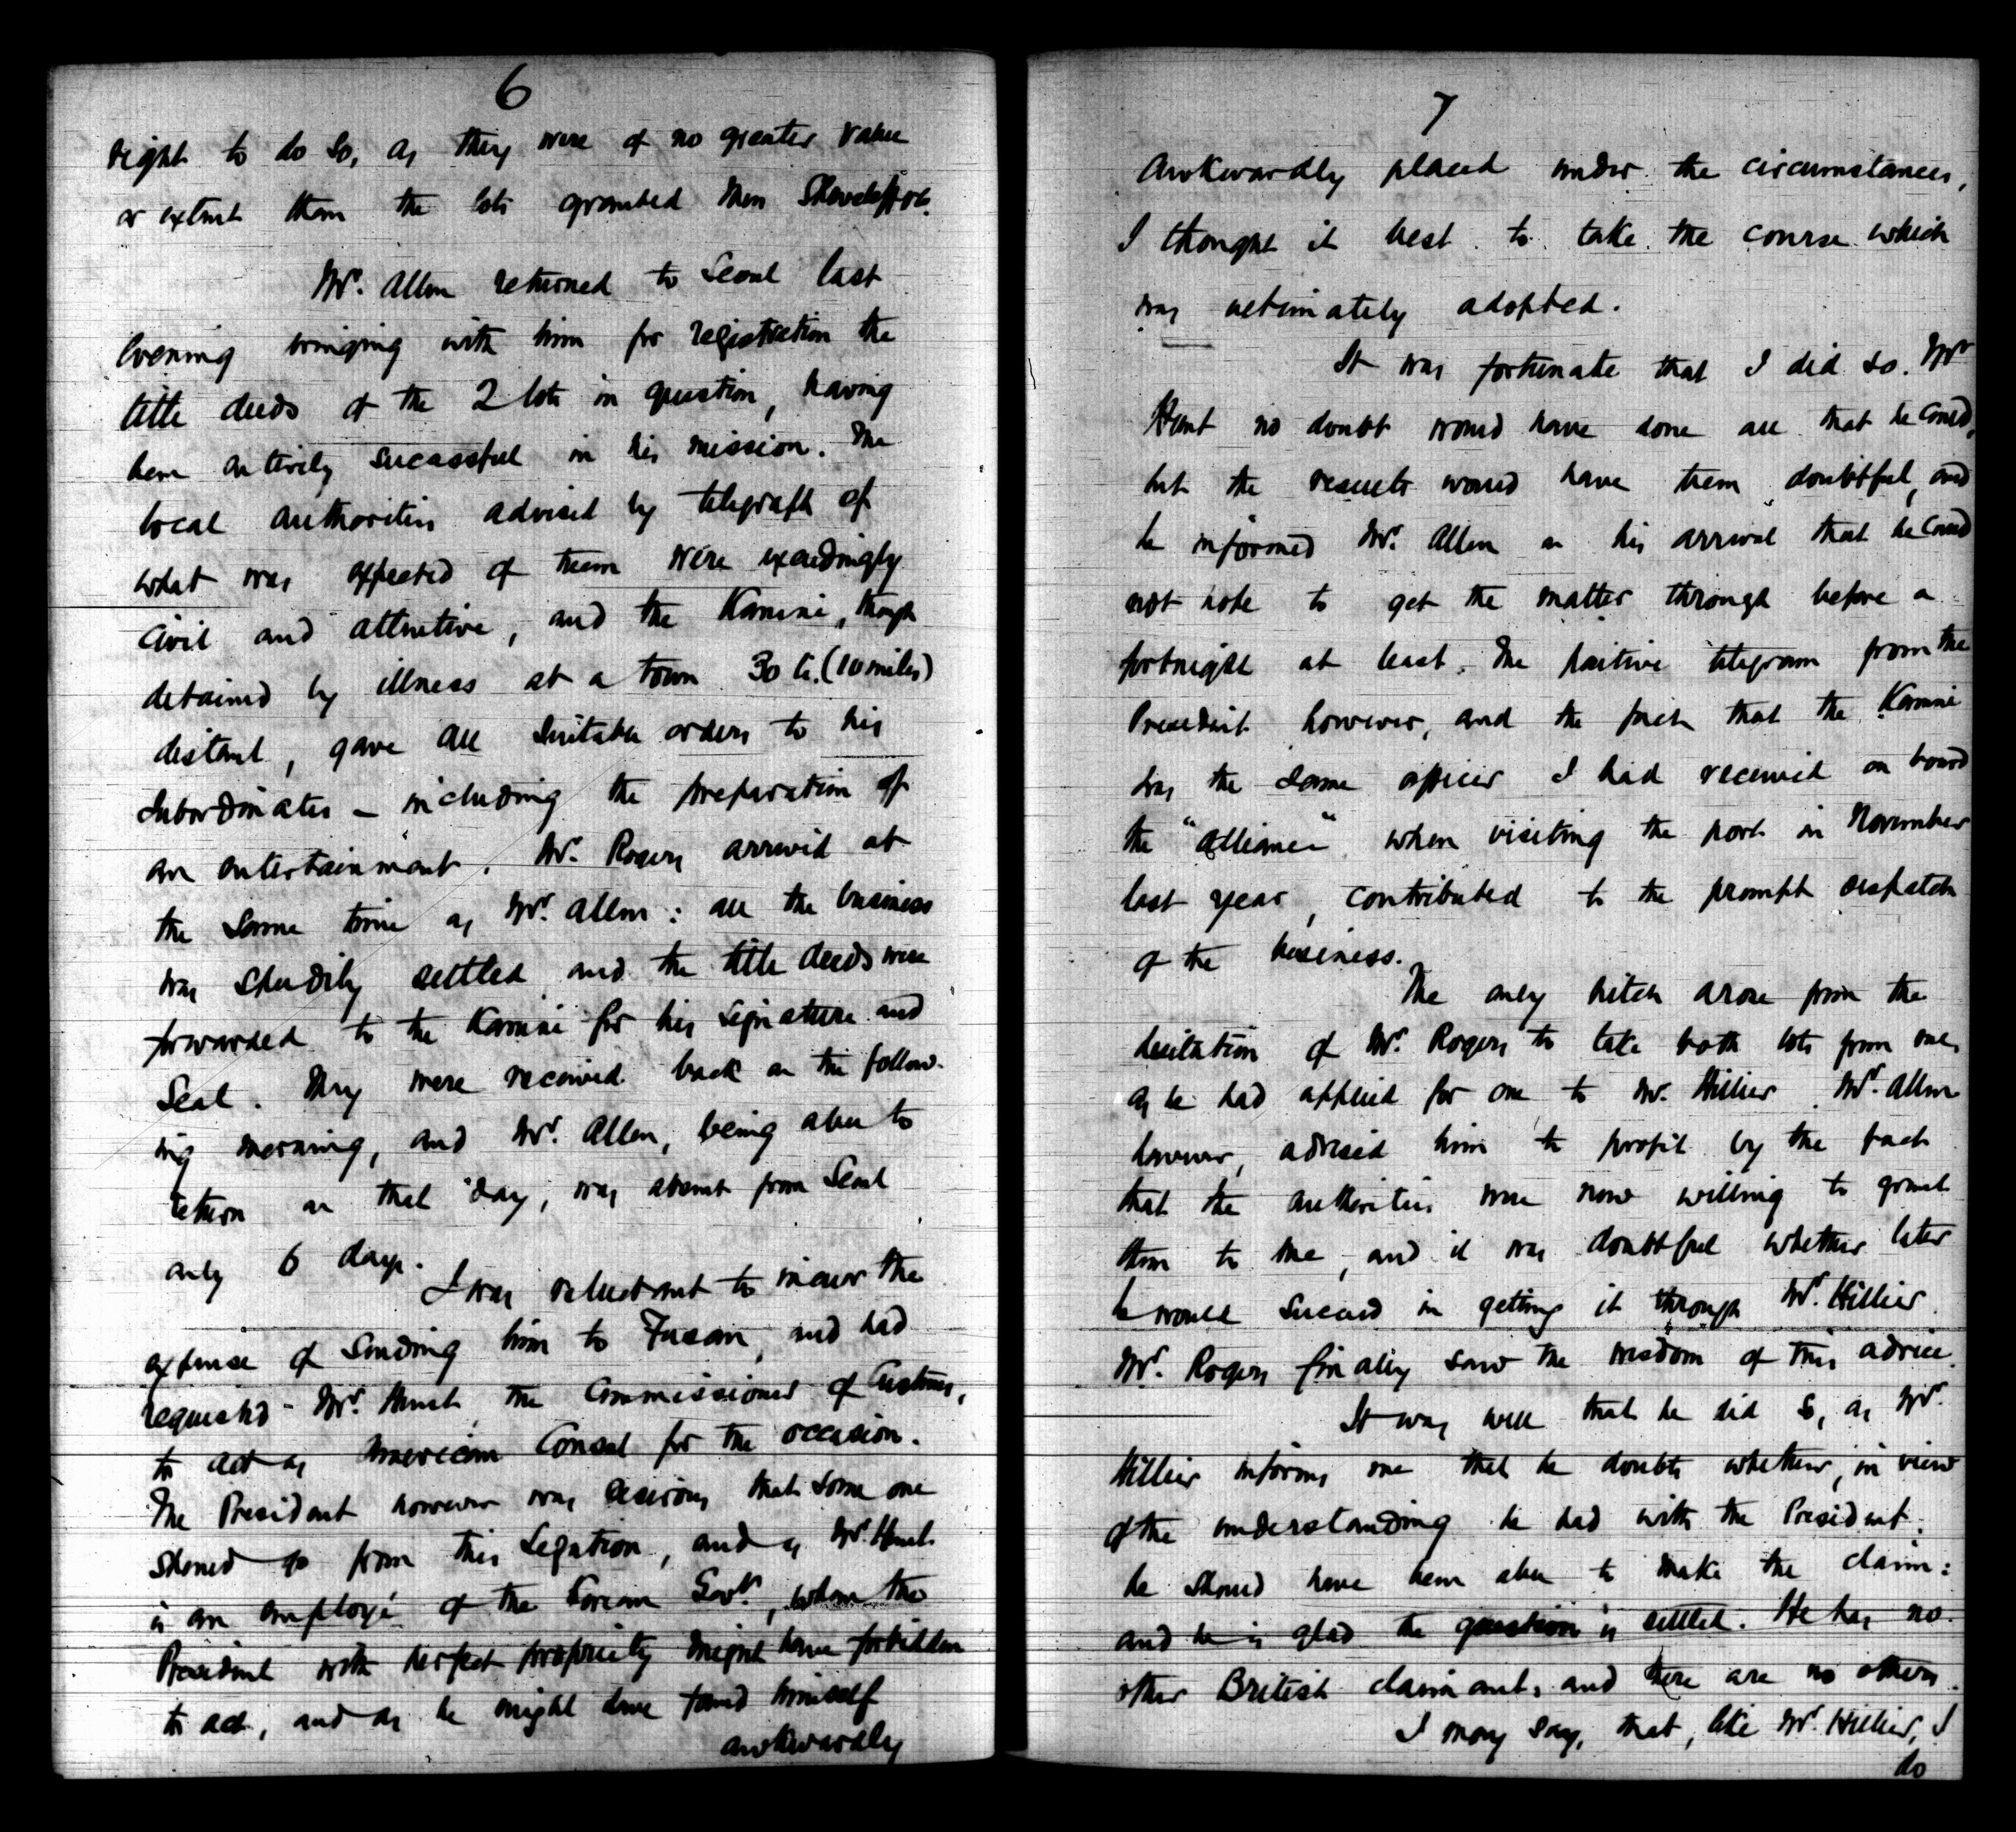 6
right to do so, as they were of no greater value
or extent than the lots granted Men
Mr. Allen returned to Seoul last
evening bringing with him for registration the
title deeds of the 2 lots in question, having
been entirely successful in his mission. The
local authorities advised by telegraph of
what was expected of them were exceedingly
civil and attentive, and the Kamni, though
detained by illness at a town 30 li. (10 miles)
distant, gave all suitable orders to his
subordinates - including the preparation of
an entertainment. Mr. Rogers arrived at
the same time as Mr. Allen: all the business
was speedily settled and the title deeds were
forwarded to the Kamni for his signature and
seal. They were received back on the follow-
ing morning, and Mr. Allen, being able to
return on that day, was absent from Seoul
only 6 days.
I was reluctant to incur the
expense of sending him to Fusan, and had
requested Mr. Hunt, the Commissioner of Customs,
to act as American Consul for the occasion.
The President however was desirous that some one
should go from this Legation, and as Mr. Hunt
is an employé of the Korean Govt., whom the
President with perfect propriety might have forbidden
to act, and as he might have found himself
awkwardly
7
awkwardly placed under the circumstances,
I thought it best to take the course which
was ultimately adopted.
It was fortunate that I did so. Mr
Hunt no doubt would have done all that he could,
but the results would have been doubtful, and
he informed Mr. Allen on his arrival that he could
not hope to get the matter through before a
fortnight at least. The positive telegram from the
President however, and the fact that the Kamni
was the same officer I had received on board
the "Alliance" when visiting the port in November
last year, contributed to the prompt despatch
of the business.
The only hitch arose from the
hesitation of Mr. Rogers to take both lots from me,
as he had applied for one to Mr. Hillier. Mr. Allen
however, advised him to profit by the fact
that the authorities were now willing to grant
them to me, and it was doubtful whether later
he would succeed in getting it through Mr. Hillier.
Mr. Rogers finally saw the wisdom of this advice.
It was well that he did so, as Mr.
Hillier informs me that he doubts whether, in view
of the understanding he had with the President,
he should have been able to make the claim:
and he is glad the question is settled. He has no
other British claimants and there are no others.
I may say, that, like Mr. Hillier, I
do